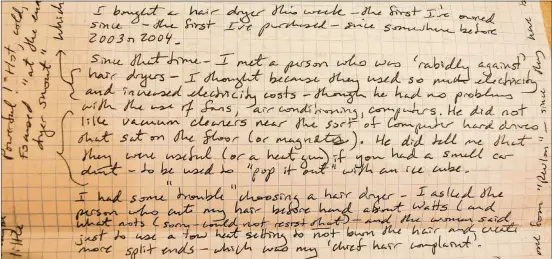 I bought a hair dryer this week - the first I've owned
since - the first I've purchased - since somewhere before
2003 or 2004.
Since that time - I met a person who was 'rabidly against'
hair dryers - I thought because they used so much electricity
and increased electricity costs - though he had no problems
with the use of fans, air conditioning, computers. He did not
like vacuum cleaners near the sort of computer hard drives
that sat on the floor (or magnets). He did tell me that
they were useful (or a heat gun) if you had a small car
dent - to be used to "pop it out" with an ice cube.
I had some "trouble" choosing a hair dryer - I asked the
person who cuts my hair before hand about watts (and
what nots (sorry could not resist that) - and the woman said
just to use a low heat setting to not burn the hair and create
more split ends - which was my 'chief hair complaint'.
Powerful! Hot, cold,
Focused "at the end
dryer snout"
which
little
since they have b